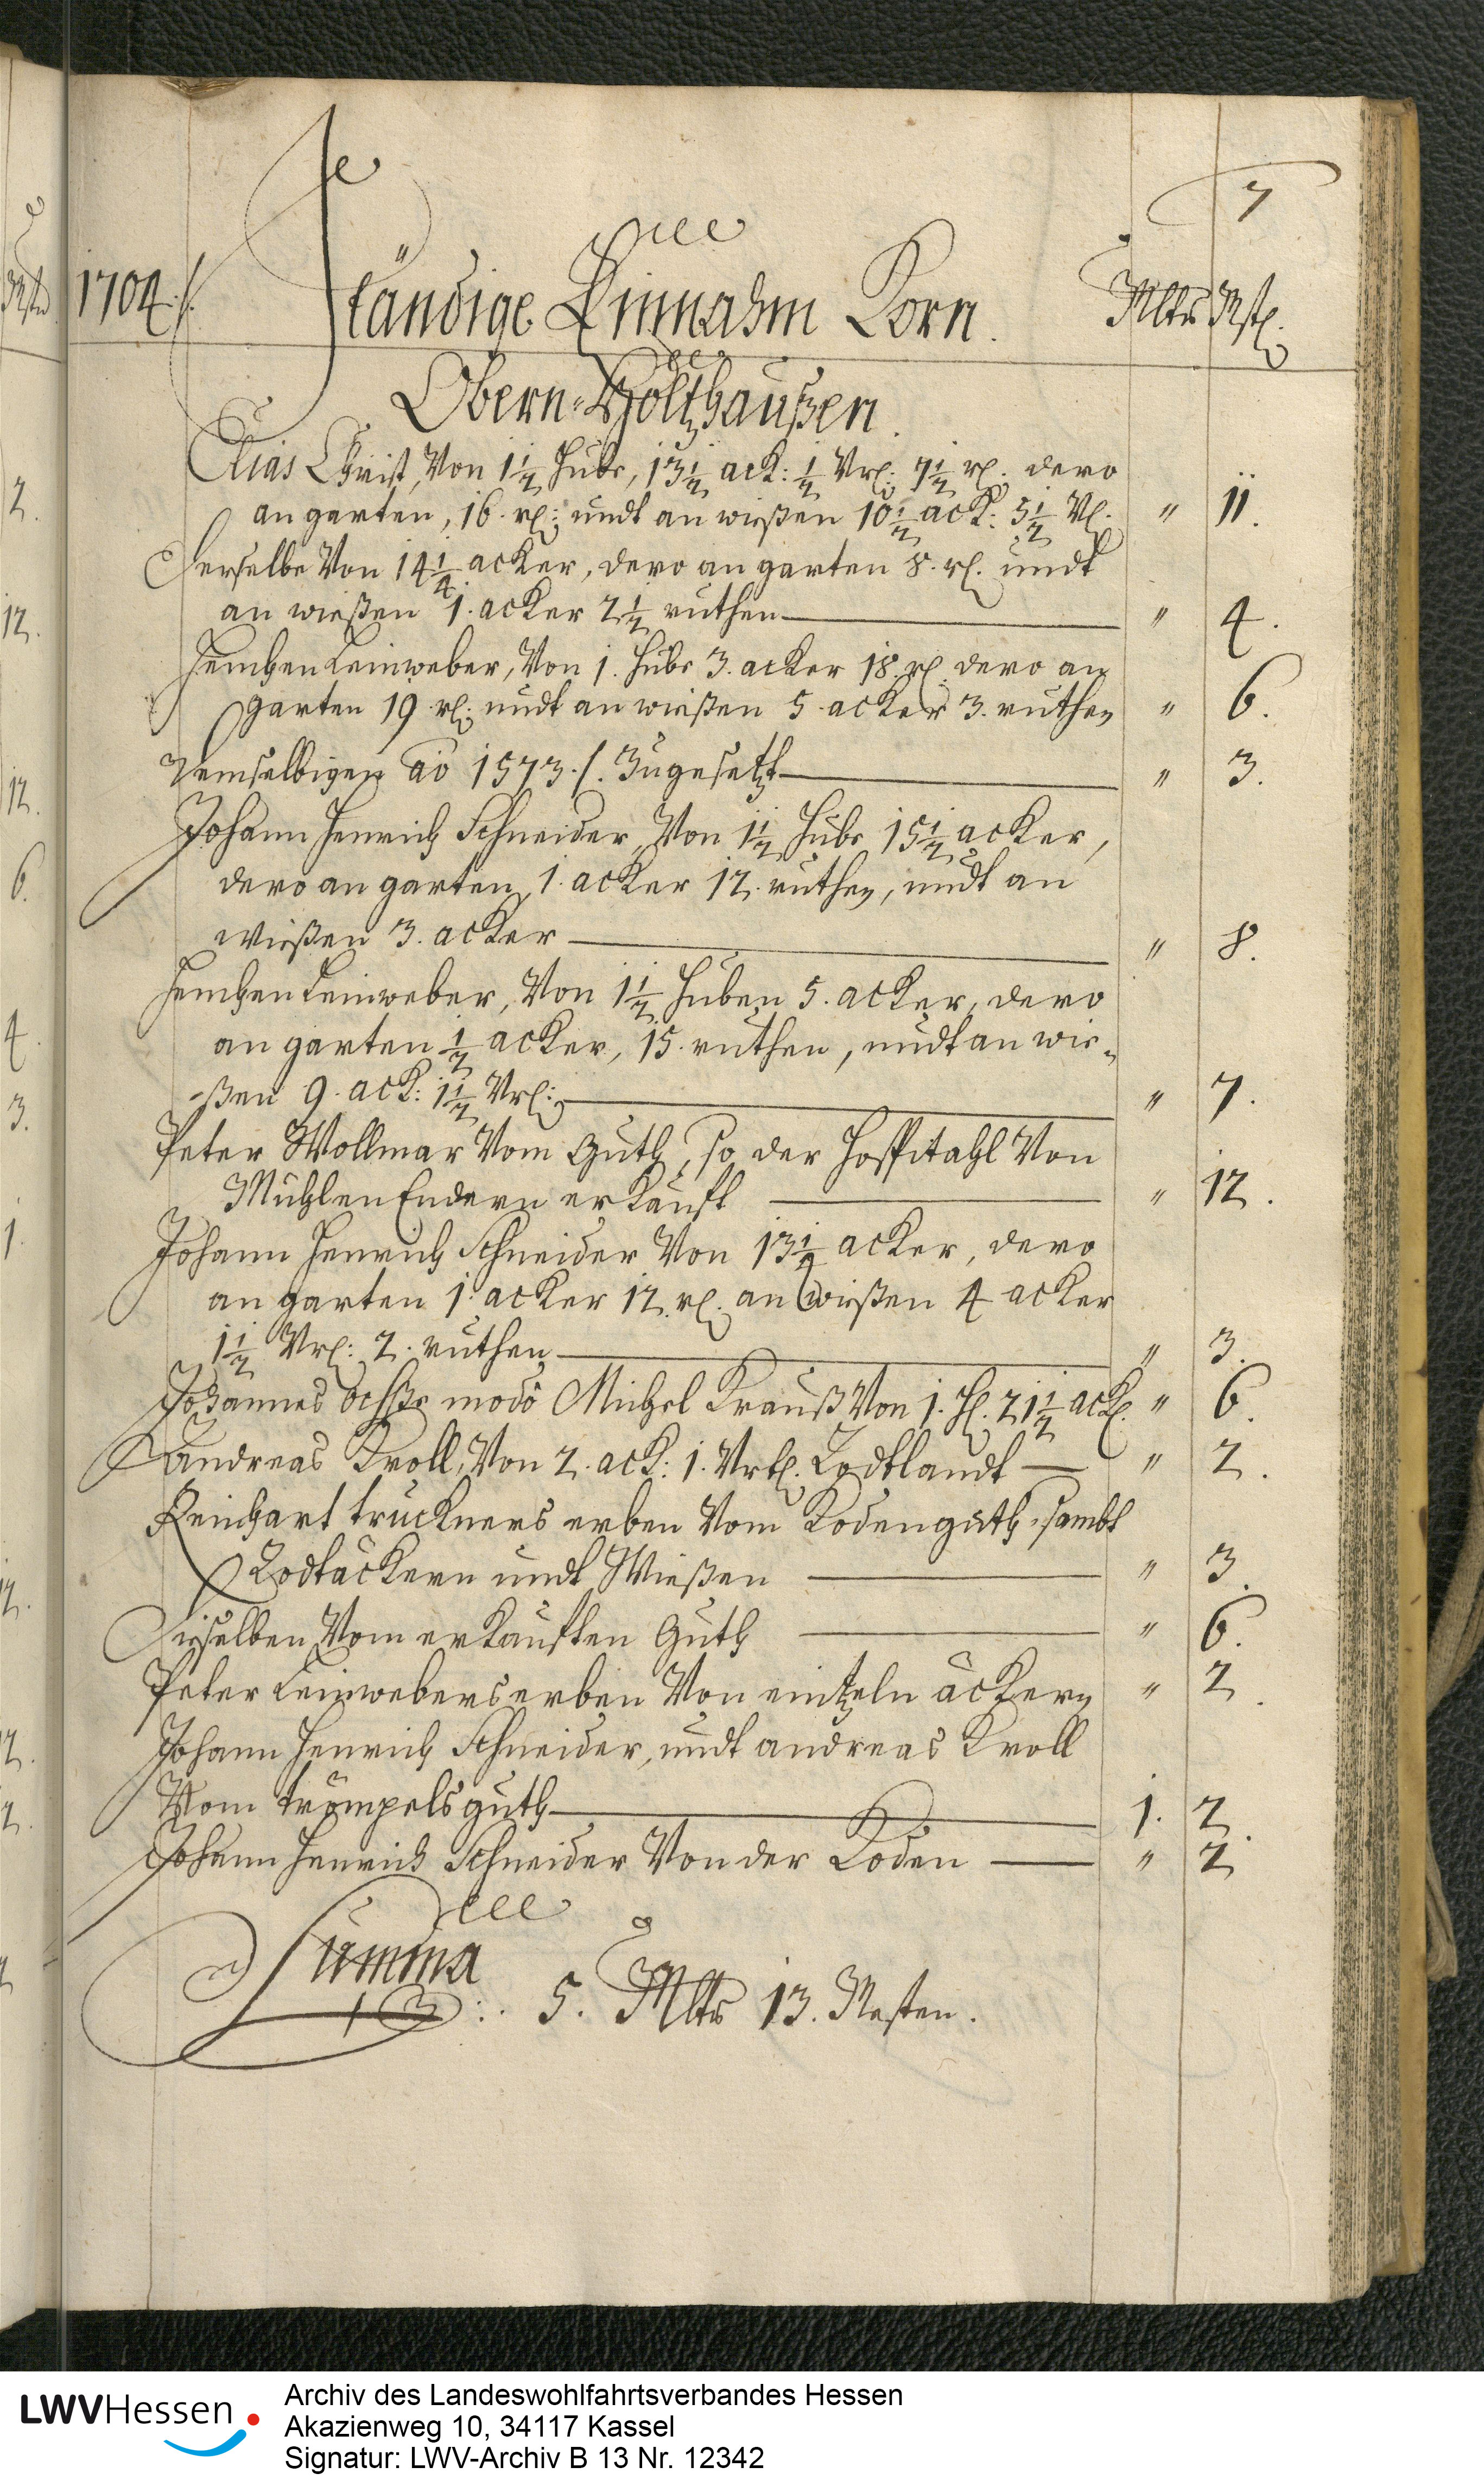 7
1704 /.
Ständige Einnahm Korn.
Mltr Mst.
Obern-Höltzhaußen.
Elias Christ, Von 1 1/2 Hube, 13 1/2 ack: 1/2 Vrl: 7 1/2 rt. dero
an garten, 16. rt: undt an wießen 10 1/2 ack: 5 1/2 Vl. " 11.
Derselbe Von 14 1/4 acker, dero an garten 8. rt. undt
an wießen 1. acker 2 1/2 ruthen " 4.
Henchen Leinweber, Von 1. Hube 3. acker 18. rt. dero an
garten 19 rt: undt an wießen 5 acker 3. ruthen " 6.
Demselbigen ao 1573 /. Zugesetzt " 3.
Johann Henrich Schneider, Von 1 1/2 Hube 15 1/2 acker,
dero an garten 1. acker 12. ruthen, undt an
wießen 3. acker " 8.
Henchen Leinweber, Von 1 1/2 Huben 5. acker, dero
an garten 1/2 acker, 15. ruthen, undt an wie-
-ßen 9. ack: 1 1/2 Vrl: " 7.
Peter Wollmar Vom Guth, so der Hospitahl Von
Mühlen Endern erkaufft " 12.
Johann Henrich Schneider Von 13 1/4 acker, dero
an garten 1. acker 12. rt. an wießen 4 acker
1 1/2 Vrl: 2. ruthen " 3.
Johannes ochße modo Michel Krauß Von 1. H. 21 1/2 ack. " 6.
Andreas Kroll, Von 2. ack: 1. Vrtl. Rodtlandt " 2.
Reinhart truckners erben Vom Rodenguth sambt
Rodtäckern undt Wießen " 3.
Dieselben Vom erkaufften Guth " 6.
Peter Leinwebers erben Von eintzeln äckern " 2.
Johann Henrich Schneider, undt andreas Kroll
Vom trümpels guth 1. 2.
Johann Henrich Schneider Von der Roden " 2
Summa
:. 5. Mltr 13. Mesten.
2.
12.
12.
6.
4.
3.
1.
12.
12.
2.
LWVHessen
Archiv des Landeswohlfahrtsverbandes Hessen
Akazienweg 10, 34117 Kassel
Signatur: LWV-Archiv B 13 Nr. 12342